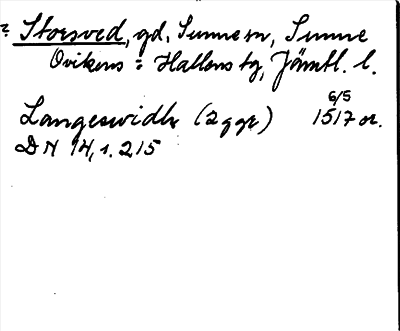 ? Storsved, gd, Sunne sn, Sunne
Ovikens o Hallens tg, Jämtl. l.
6/5
Langeswidh (2 ggr) 1517 or.
DN 14, 1. 215